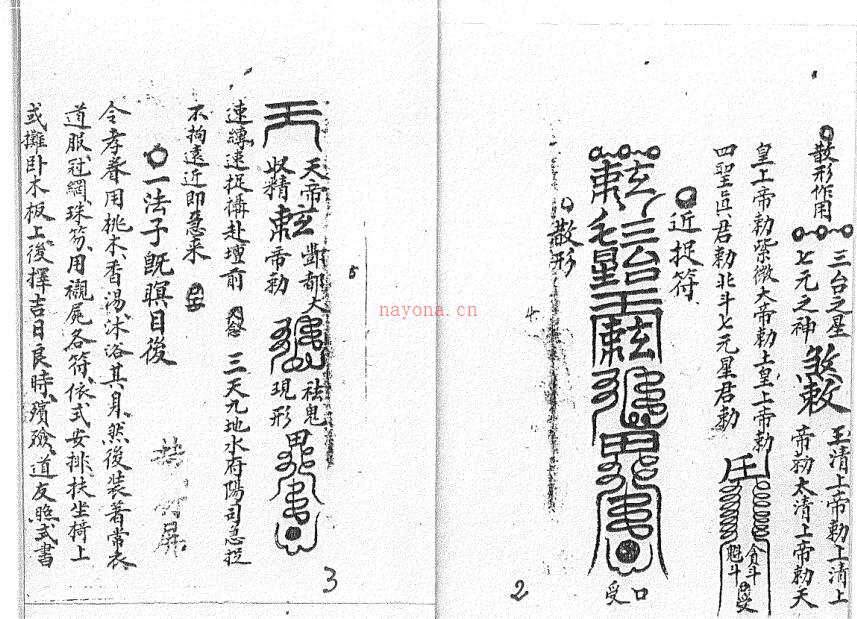 散形作用
三台之星 玉清上帝勅上清上
七元之神 煞敕 帝勅太清上帝勅天
皇上帝勅紫微大帝勅土皇上帝勅
四聖眞君勅北斗七元星君勅
貪斗
魁斗
受
近捉符
三台
星
口
受
散形
2
4
天帝 酆都大 祛鬼
收精 帝勅 現形
速縛速捉攝赴壇前 三天九地水府陽司急捉
不拘遠近即急来
一法子既瞑目後
令孝眷用桃木香湯沐浴其身、然後装著常衣
道服、冠綱、珠笏、用襯屍各符、依式安排、扶坐椅上
或攤卧木板上、後擇吉日良時、殯殮、道友照式書
3
5
nayona.cn